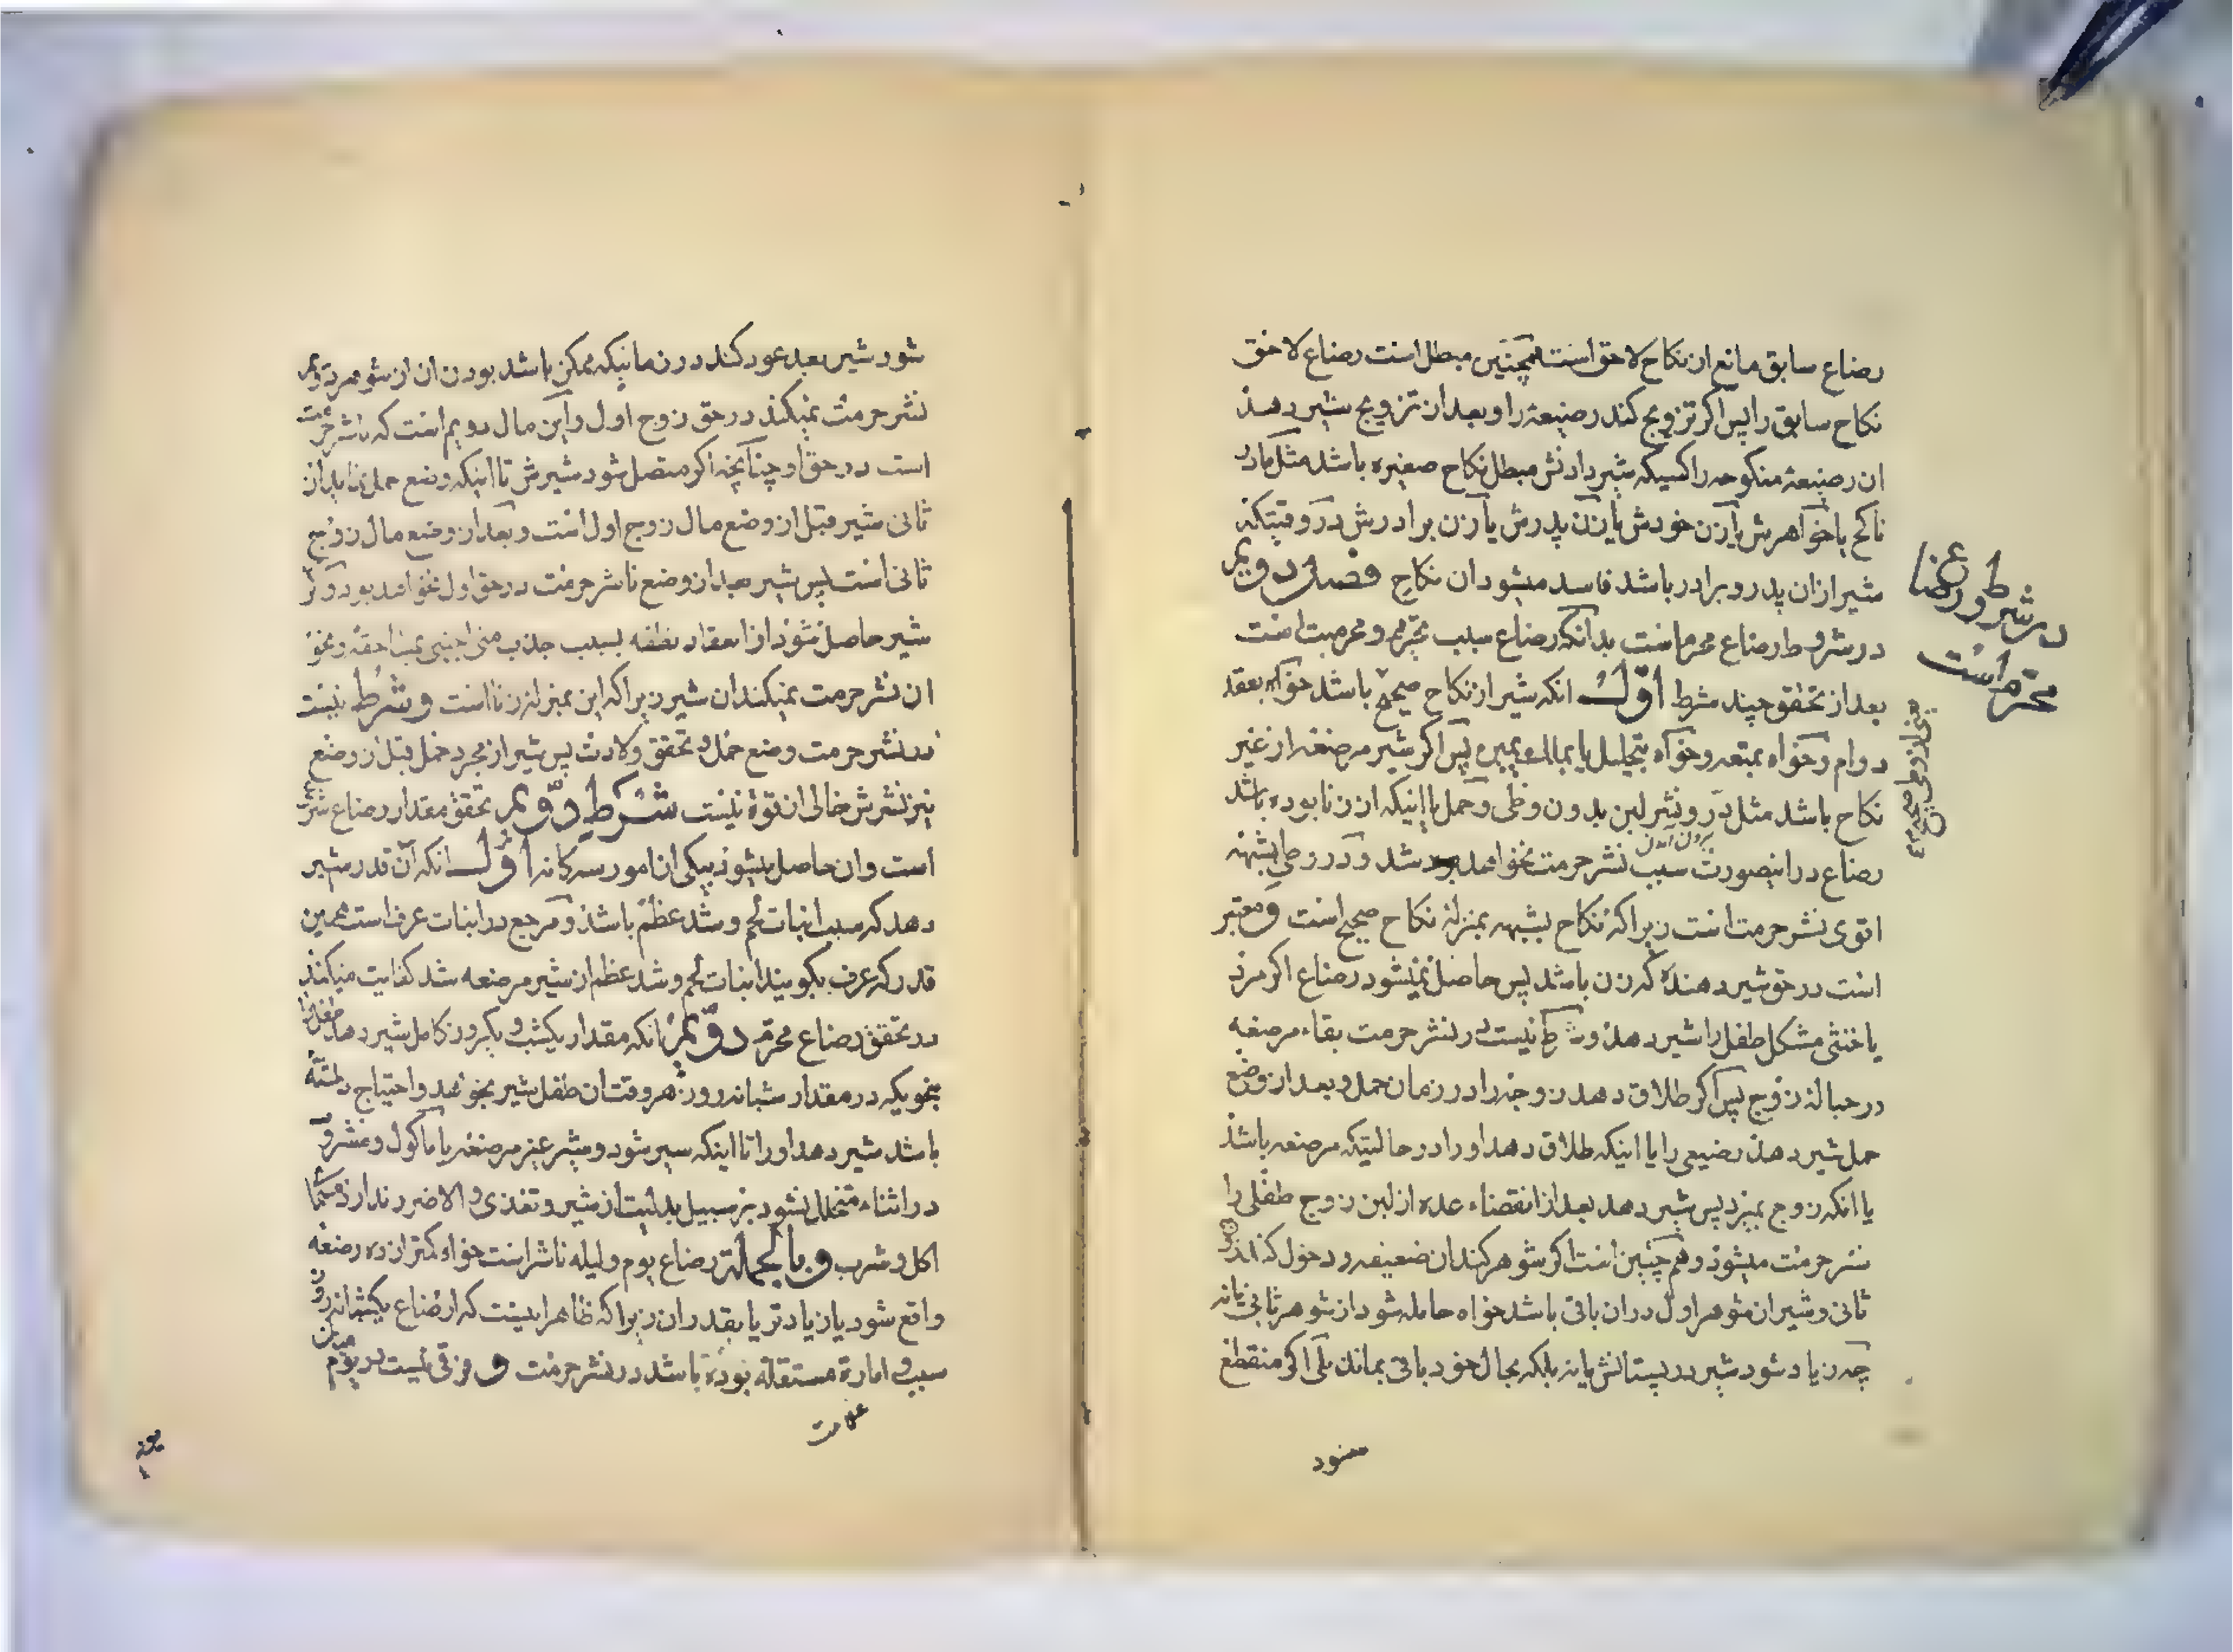 رضاع سابق مانع از نکاح لاحق است همچنین مبطل است رضاع لاحق
نکاح سابق را پس اکر تزویج کند رضیعهٔ را و بعد از تزویج شیر دهد
ان رضیعهٔ منکوحه را کسیکه شیر دادنش مبطل نکاح صغیره باشد مثل مادر
ناکح یا خواهرش یا زن خودش یا زن پدرش یا زن برادرش در وقتیکه
شیر ازان پدر و برادر باشد فاسد میشود ان نکاح فصل دویم
در شروط رضاع محرم است بدانکه رضاع سبب تحریم و محرمیت است
بعد از تحقق چند شرط اوّل انکه شیر از نکاح صحیح باشد خواه بعقد
دوام و خواه بمتعه و خواه بتحلیل یا بملک یمین پس اکر شیر مرضعه از غیر
نکاح باشد مثل در و نشر لبن بدون وطی و حمل یا اینکه از زنا بوده باشد
رضاع در اینصورت سبب نشر حرمت نخواهد شد و در وطی بشبهه
اقوی نشر حرمت است زیرا که نکاح بشبهه بمنزلهٔ نکاح صحیح است و معتبر
است در حق شیر دهنده که زن باشد پس حاصل نمیشود رضاع اکر مرد
یا خنثی مشکل طفل را شیر دهد و شرط نیست در نشر حرمت بقاء مرضعه
در حباله زوج پس اکر طلاق دهد زوجه را در زمان حمل و بعد از وضع
حمل شیر دهد رضیعی را یا اینکه طلاق دهد او را در حالتیکه مرضعه باشد
یا انکه زوج بمیرد پس شیر دهد بعد از انقضاء عده از لبن زوج طفلی را
نشر حرمت میشود و هم چنین است اکر شوهر کند ان ضعیفه و دخول کند
ثانی و شیر ان شوهر اول در ان باقی باشد خواه حامله شود از شوهر ثانی یا نه
چه زیاد شود شیر در پستانش یا نه بلکه بحال خود باقی بماند بلی اکر منقطع
در شروط رضاع
محرم است
شود شیر بعد عود کند در زمانیکه ممکن باشد بودن ان از شوهر دویم
نشر حرمت نمیکند در حق زوج اول و این مال دویم است که ناشر حرمت
است در حق او چنانچه اکر متصل شود شیرش تا اینکه وضع حمل نماید از
ثانی شیر قبل از وضع مال زوج اول است و بعد از وضع مال زوج
ثانی است پس شیر بعد از وضع ناشر حرمت در حق اول نخواهد بود و اکر
شیر حاصل شود از انعقاد نطفه بسبب جذب منی اجنبی بمساحقه و نحو
ان نشر حرمت نمیکند ان شیر زیرا که این بمنزله زنا است و شرط نیست
در نشر حرمت وضع حمل و تحقق ولادت پس شیر از مجرد حمل قبل از وضع
نیز نشرش خالی از قوة نیست شرط دوّیم تحقق مقدار رضاع شرعی
است و ان حاصل میشود بیکی از امور سه کانه اوّل انکه آن قدر شیر
دهد که سبب انبات لحم و شد عظم باشد و مرجع در انبات عرف است همین
قدر که عرف بکویند انبات لحم و شد عظم از شیر مرضعه شد کفایت میکند
در تحقق رضاع محرّم دوّیم انکه مقدار یکشب و یکروز کامل شیر دهد طفل را
بنحویکه در مقدار شبانه روز هر وقت ان طفل شیر بخواهد و احتیاج داشته
باشد شیر دهد او را تا اینکه سیر شود و شیر غیر مرضعه یا ماکول و مشروب
در اثناء متخلل نشود بر سبیل بدلیت از شیر و تغذی و الا ضرر ندارد مسمّا
اکل و شرب و بالجملة رضاع یوم و لیله ناشر است خواه کمتر از ده رضعه
واقع شود یا زیادتر یا بقدر ان زیرا که ظاهر اینست که ارضاع یکشبانه روز
سبب و امارة مستقله بوده باشد در نشر حرمت و فرقی نیست در یوم
شود